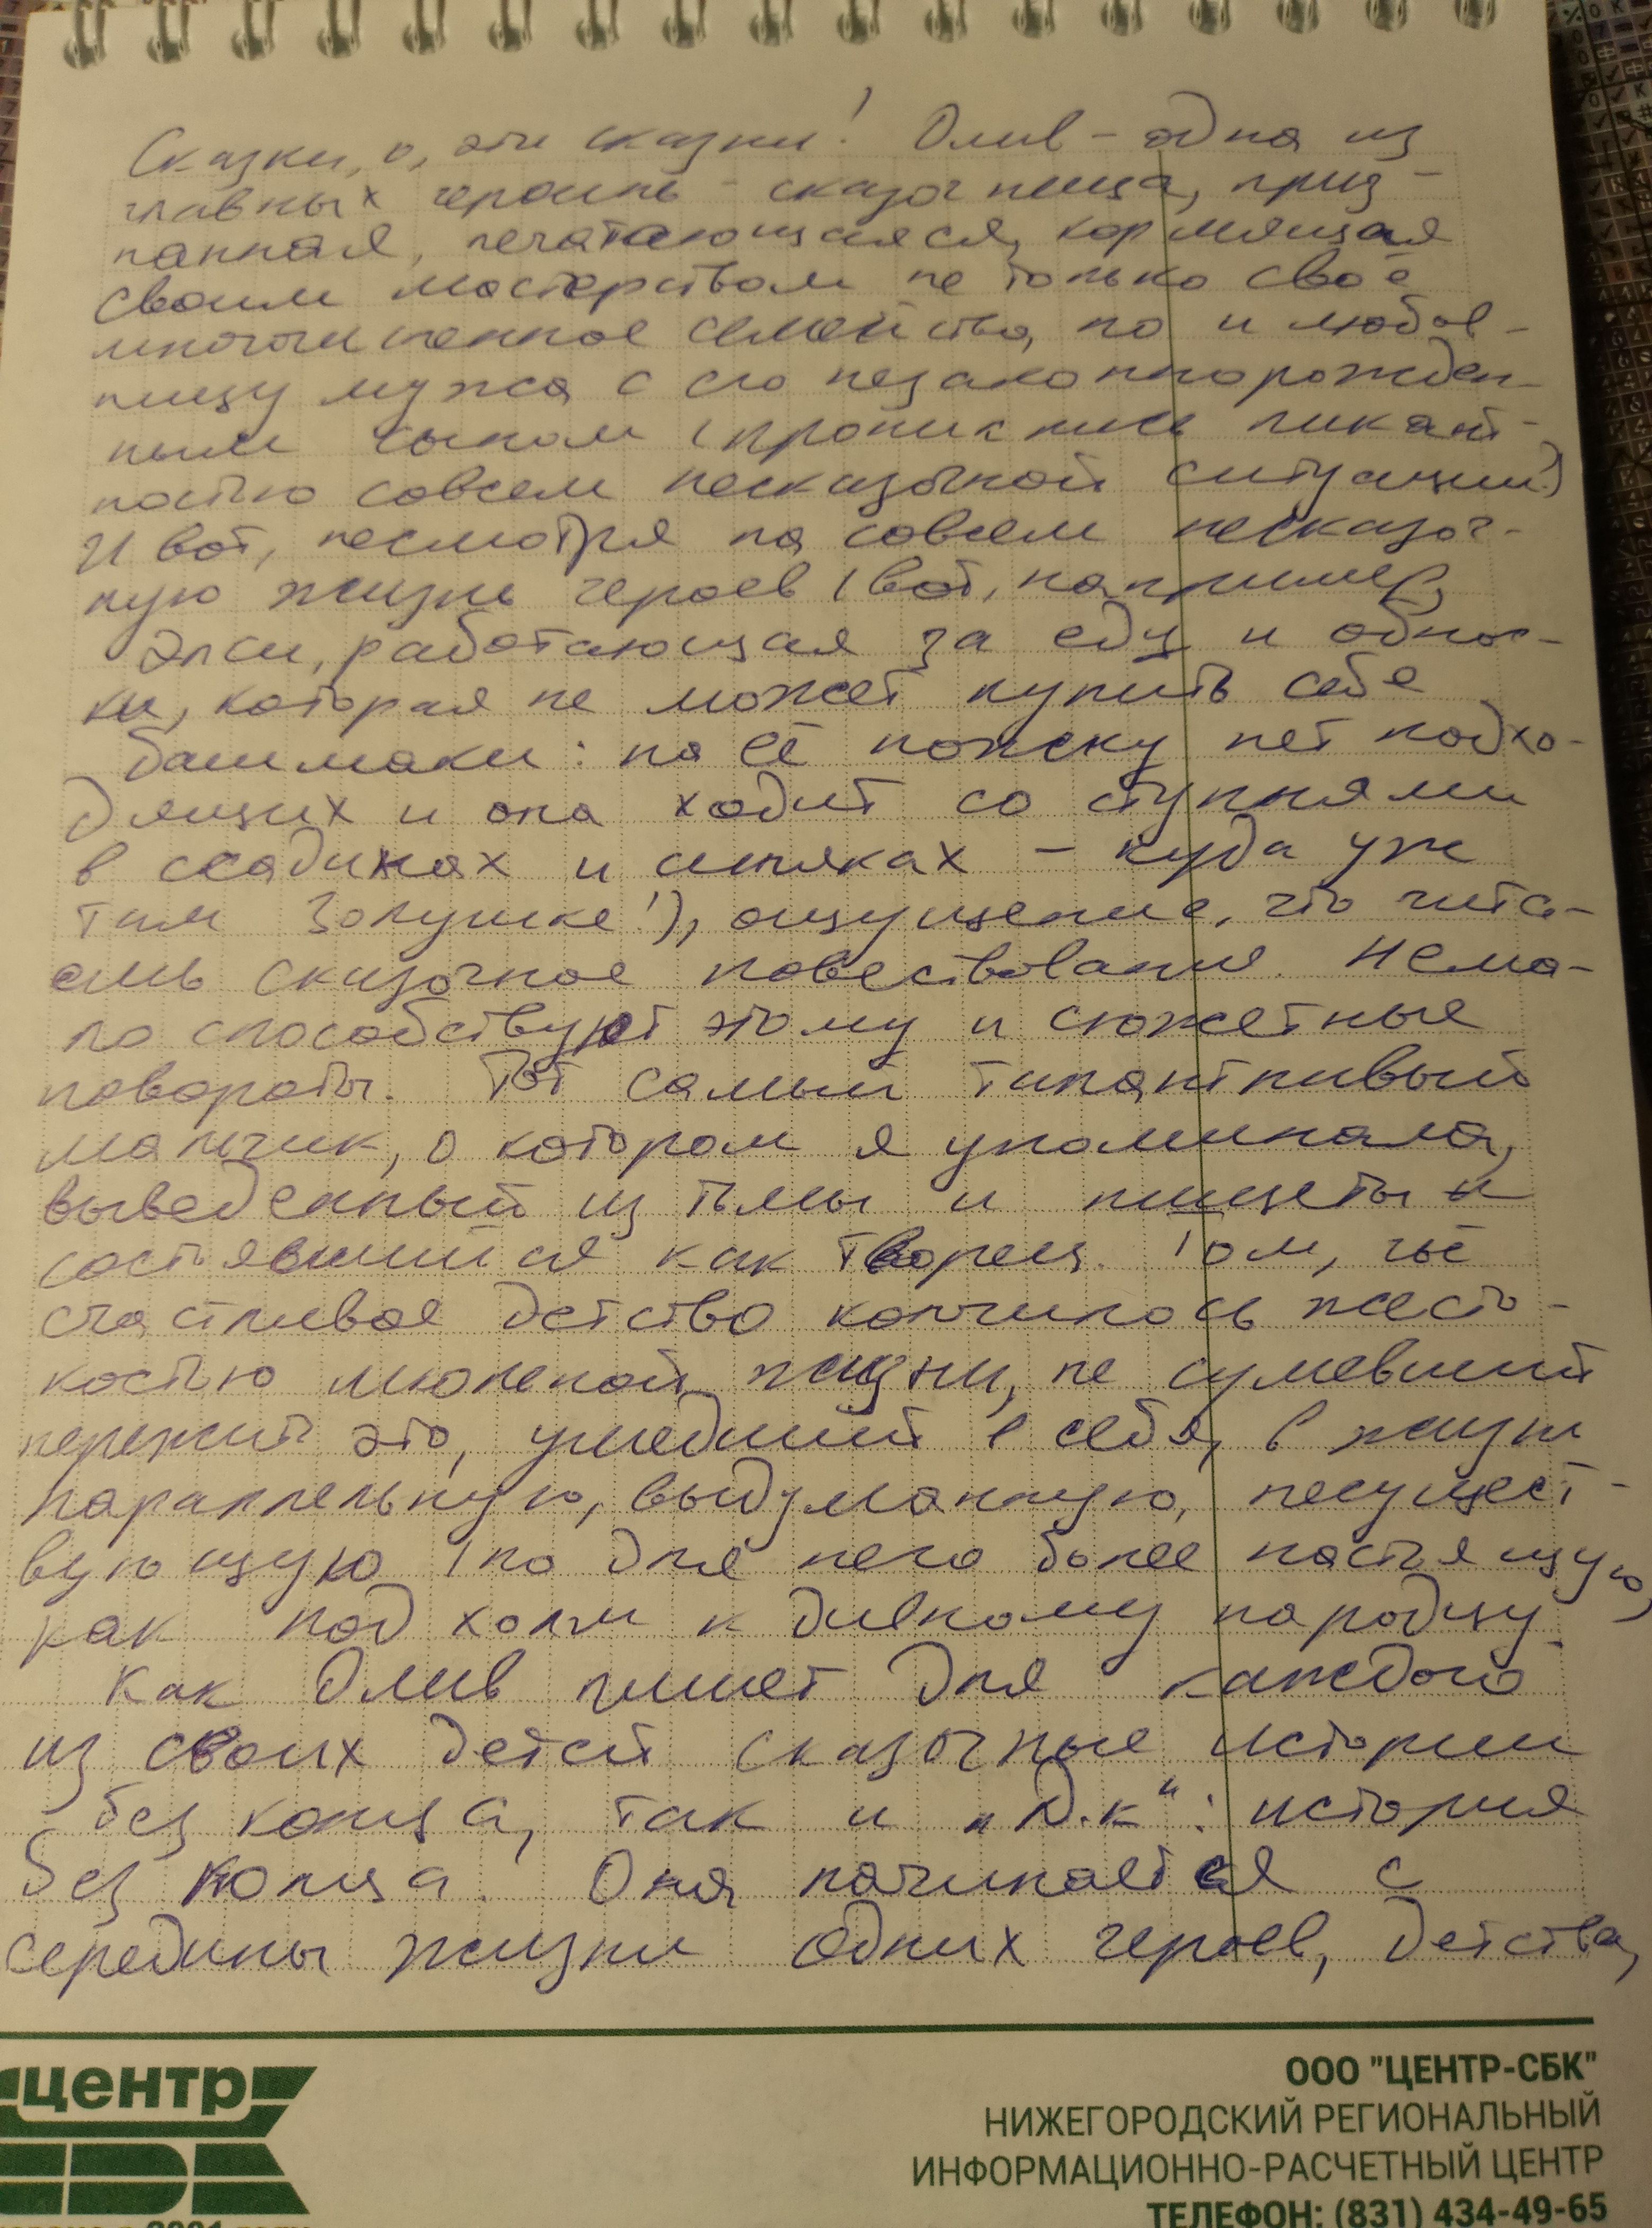 Сказки, о, эти сказки! Олив – одна из
главных героинь – сказочница, приз-
нанная, печатающаяся, кормящая
своим мастерством не только своё
многочисленное семейство, но и любов-
ницу мужа с его незаконнорожден-
ным сыном (проникнись пикант-
ностью совсем несказочной ситуации!)
И вот, несмотря на совсем несказоч-
ную жизнь героев (вот, например,
Элси, работающая за еду и обнос-
ки, которая не может купить себе
башмаки: на её ножку нет подхо-
дящих и она ходит со ступнями
в ссадинах и синяках – куда уж
там Золушке!), ощущение, что чита-
ешь сказочное повествование. Нема-
ло способствуют этому и сюжетные
повороты. Тот самый талантливый
мальчик, о котором я упоминала,
выведенный из тьмы и нищеты и
состоявшийся как творец. Том, чьё
счастливое детство кончилось жесто-
костью школьной жизни, не сумевший
пережить это, ушедший в себя, в жизнь
параллельную, выдуманную, несущест-
вующую (но для него более настоящую,
как под холм к дивному народцу.
Как Олив пишет для каждого
из своих детей сказочные истории
без конца, так и „Д.к“: история
без конца. Она начинается с
середины жизни одних героев, детства,
центр
ООО "ЦЕНТР-СБК"
НИЖЕГОРОДСКИЙ РЕГИОНАЛЬНЫЙ
ИНФОРМАЦИОННО-РАСЧЕТНЫЙ ЦЕНТР
ТЕЛЕФОН: (831) 434-49-65